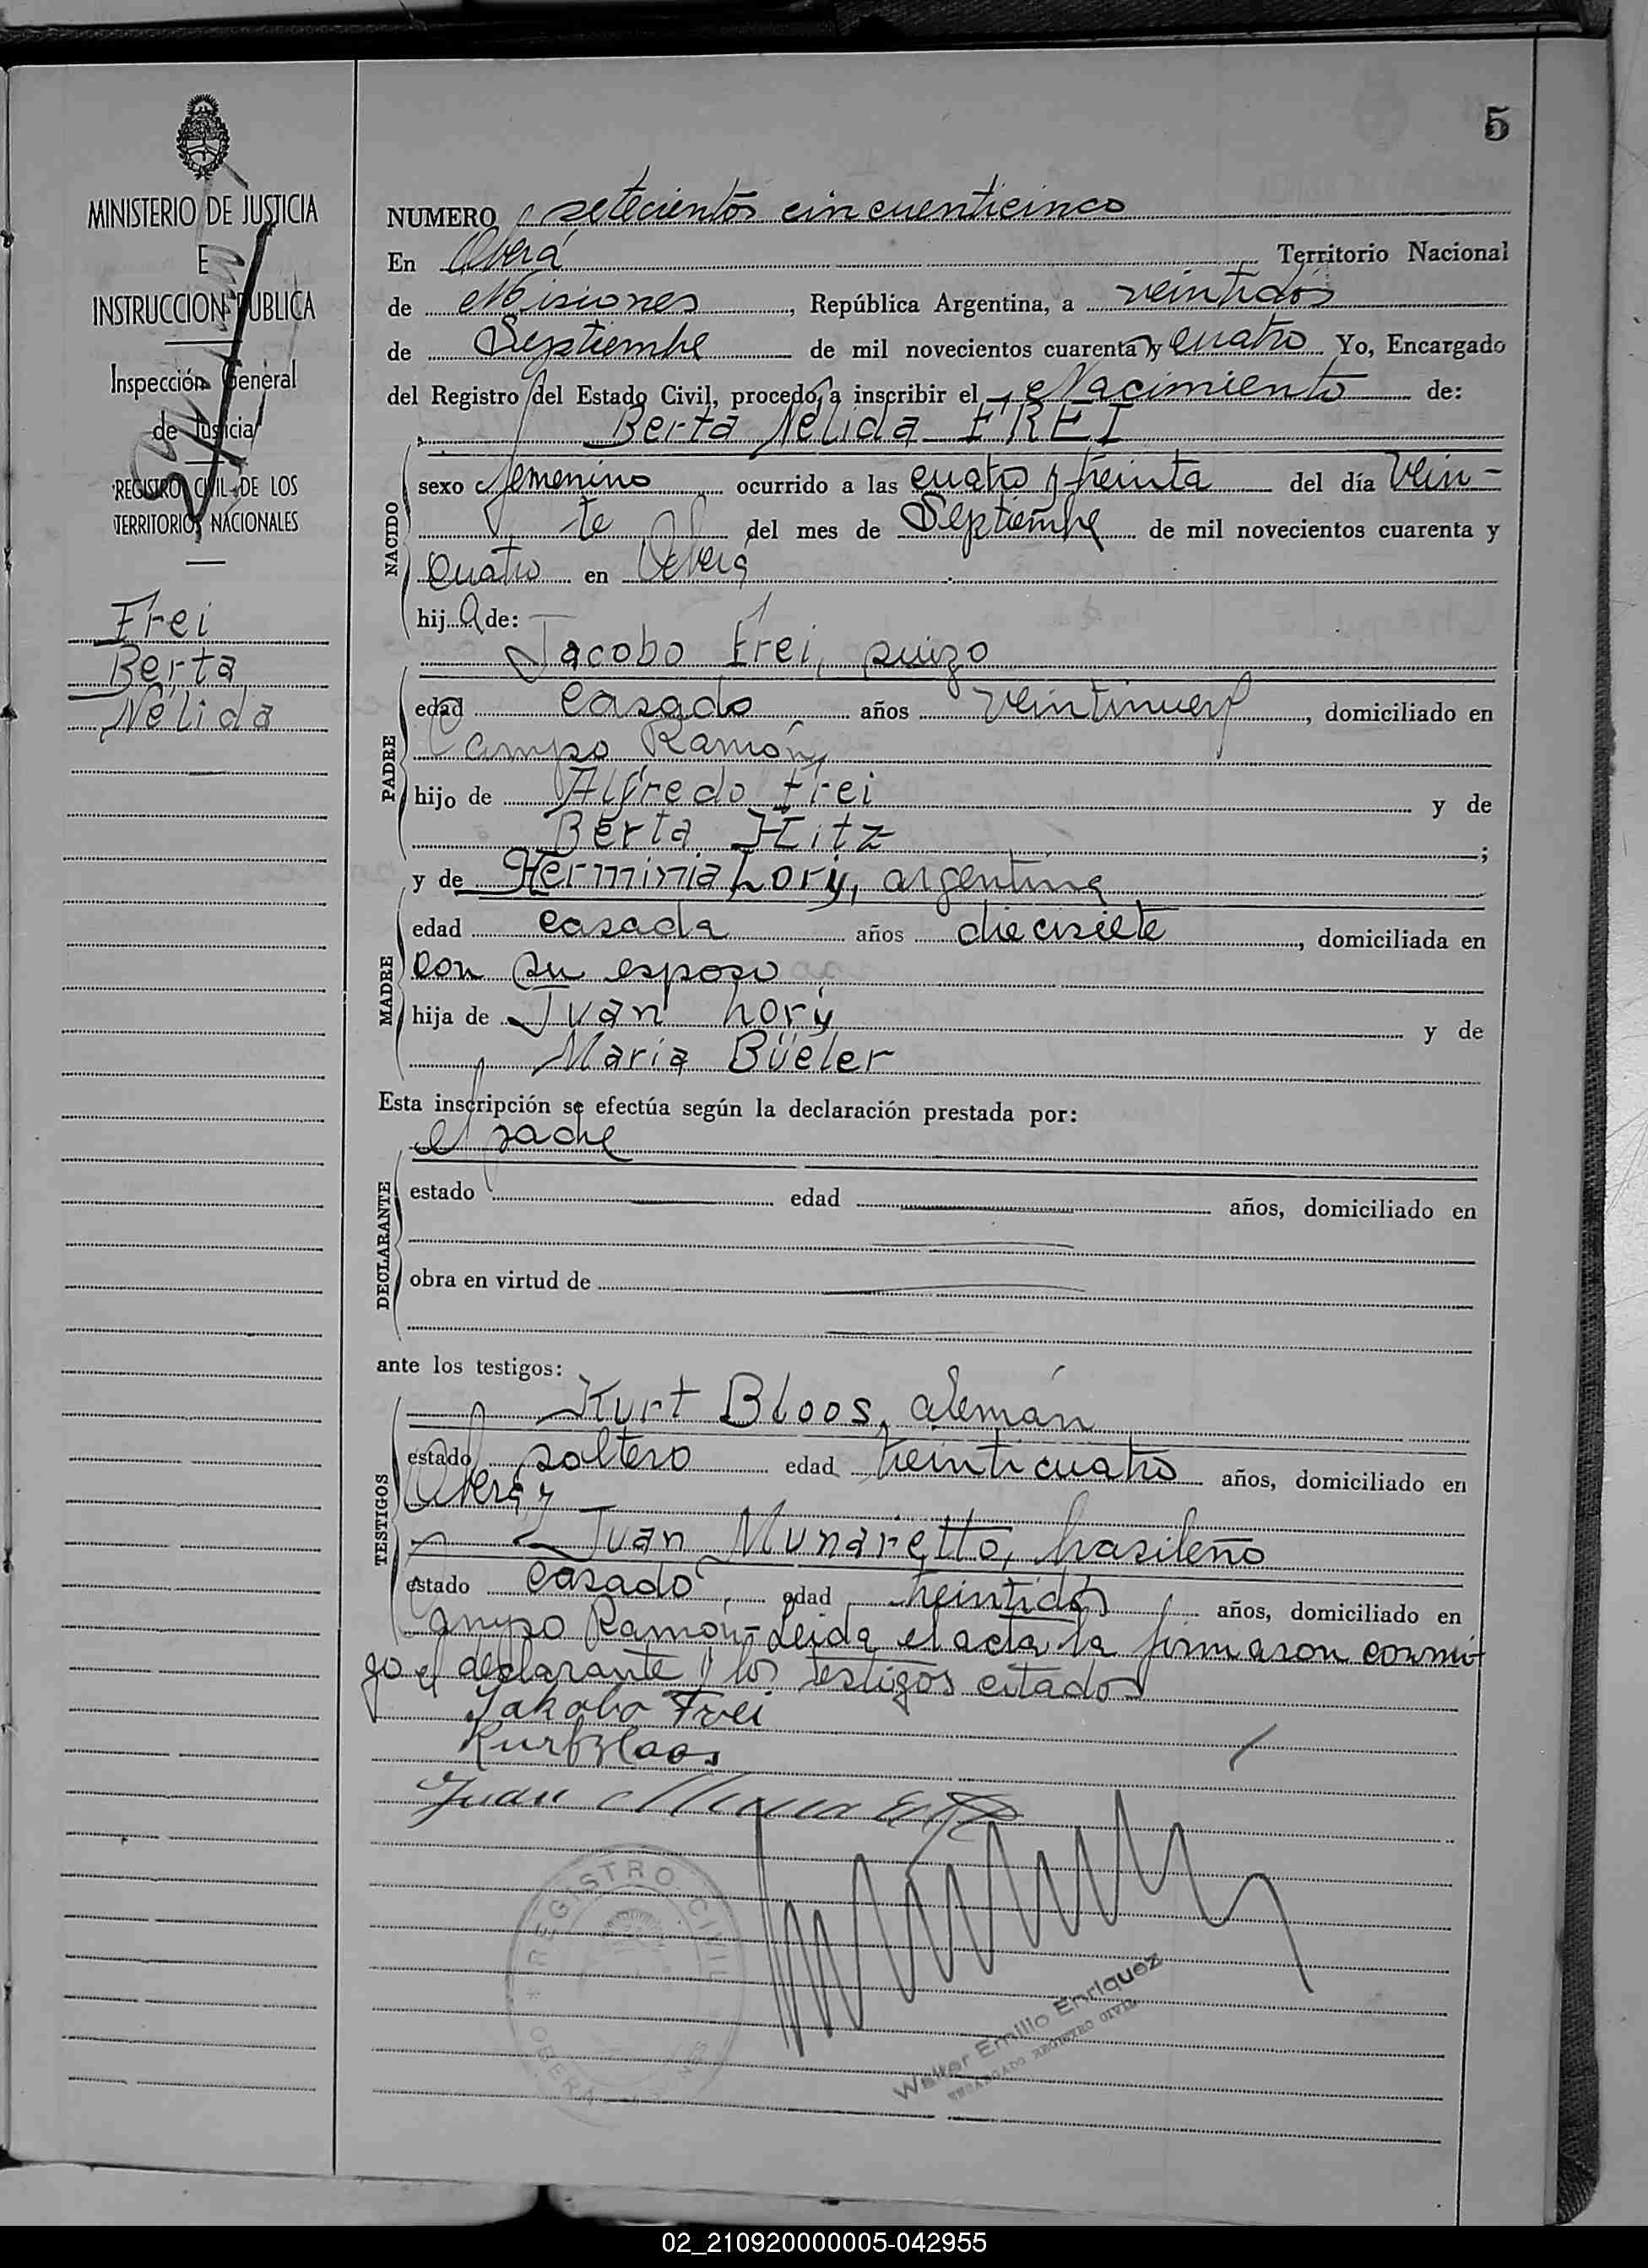 5
MINISTERIO DE JUSTICIA
E
INSTRUCCION PUBLICA
Inspección General
de Justicia
REGISTRO CIVIL DE LOS
TERRITORIOS NACIONALES
Frei
Berta
Nélida
NUMERO setecientos cincuenticinco
En Oberá Territorio Nacional
de Misiones, República Argentina, a veintidós
de Septiembre de mil novecientos cuarenta y cuatro Yo, Encargado
del Registro del Estado Civil, procedo a inscribir el Nacimiento de:
Berta Nélida FREI
NACIDO
sexo femenino ocurrido a las cuatro y treinta del día vein-
te del mes de Septiembre de mil novecientos cuarenta y
cuatro en Oberá
hija de:
Jacobo Frei, suizo
PADRE
edad casado años veintinueve, domiciliado en
Campo Ramón,
hijo de Alfredo Frei y de
Berta Hitz;
y de Herminia Lory, argentina
MADRE
edad casada años diecisiete, domiciliada en
con su esposo
hija de Juan Lory y de
María Büeler
Esta inscripción se efectúa según la declaración prestada por:
el padre
DECLARANTE
estado edad años, domiciliado en
obra en virtud de
ante los testigos:
Kurt Bloos, alemán
TESTIGOS
estado soltero edad treinticuatro años, domiciliado en
Oberá y
Juan Munaretto, brasileño
estado casado, edad treintidós años, domiciliado en
Campo Ramón-Leida el acta la firmaron conmi-
go el declarante y los testigos citados
Jakobo Frei
Kurt Bloos
Juan Munaretto
REGISTRO CIVIL
OBERA
Walter Emilio Enriquez
ENCARGADO REGISTRO CIVIL
02_210920000005-042955